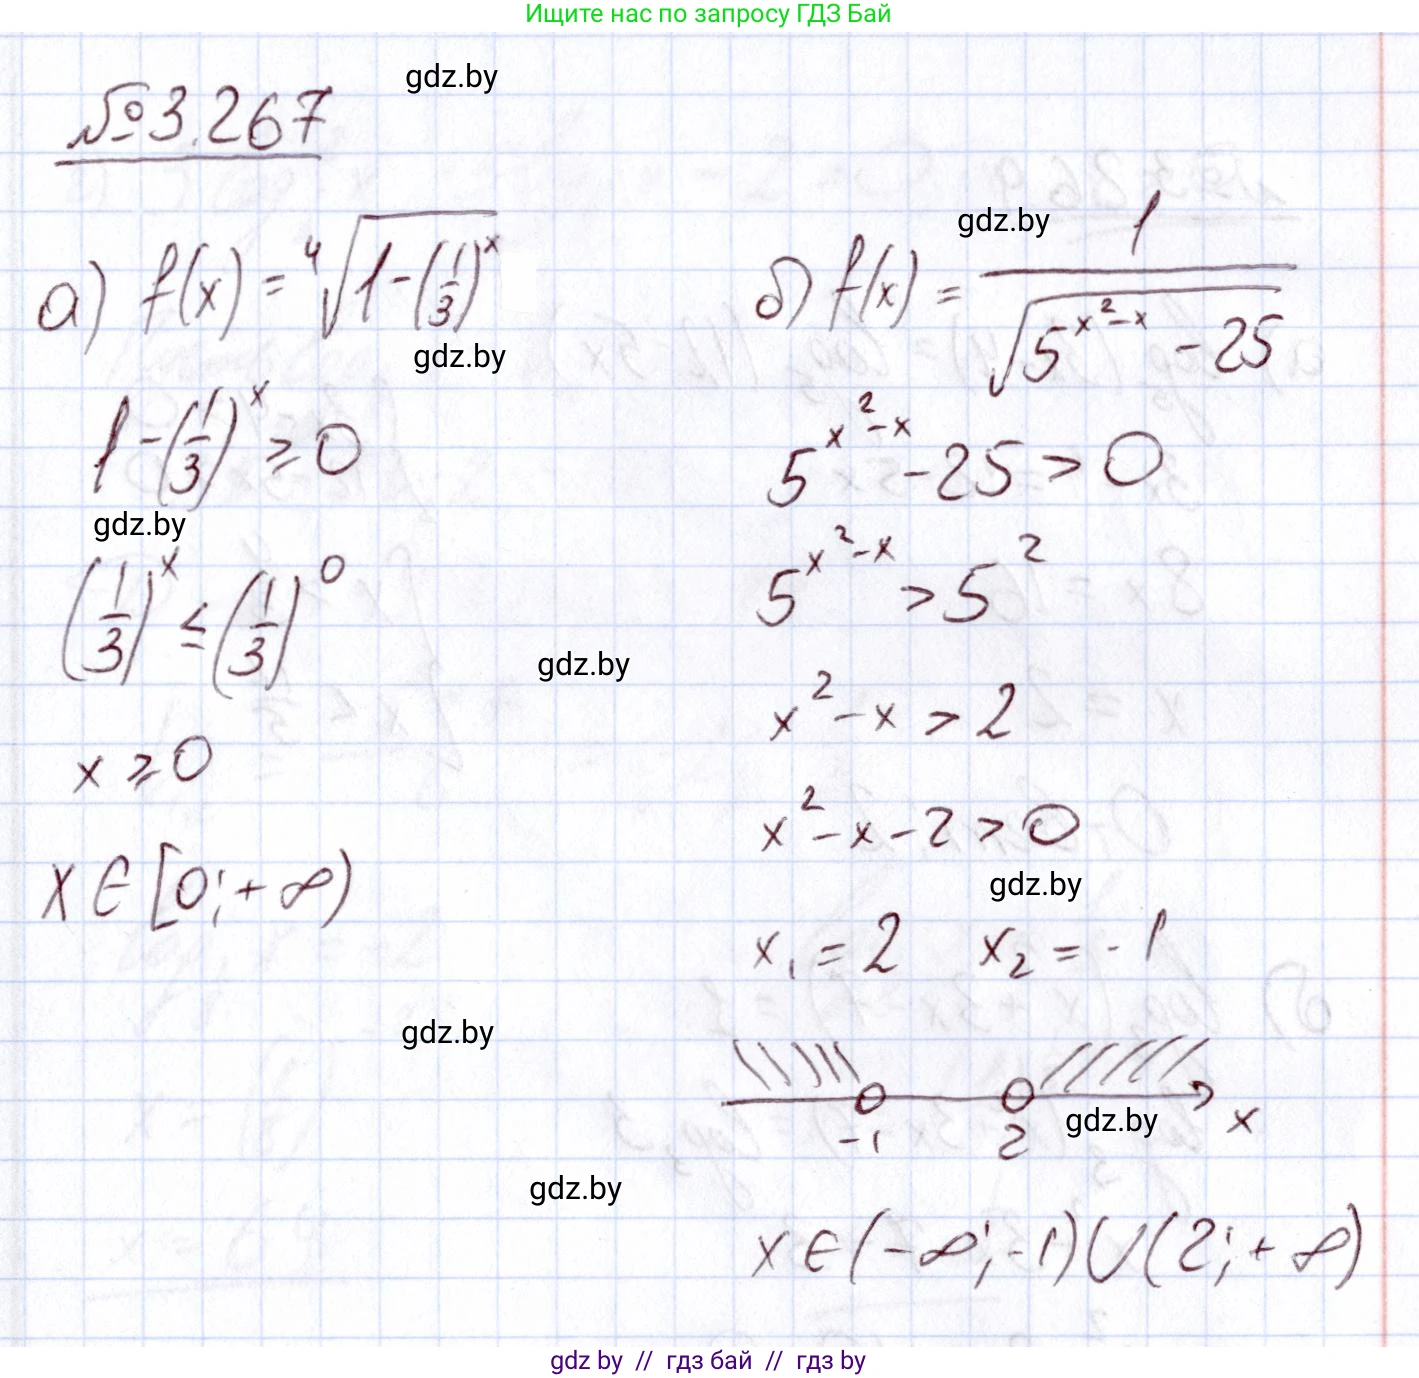 Ищите нас по запросу ГДЗ Бай
gdz.by
№3.267
gdz.by
а) f(x) = ⁴√(1-(1/3)^x)
gdz.by
1-(1/3)^x ≥ 0
gdz.by
(1/3)^x ≤ (1/3)^0
gdz.by
x ≥ 0
x ∈ [0; + ∞)
б) f(x) = 1/√(5^(x²-x) - 25)
5^(x²-x) - 25 > 0
5^(x²-x) > 5²
x² - x > 2
x² - x - 2 > 0
gdz.by
x₁ = 2 x₂ = -1
gdz.by
-1 2 gdz.by x
gdz.by
x ∈ (-∞; -1) ∪ (2; + ∞)
gdz by // гдз бай // гдз by